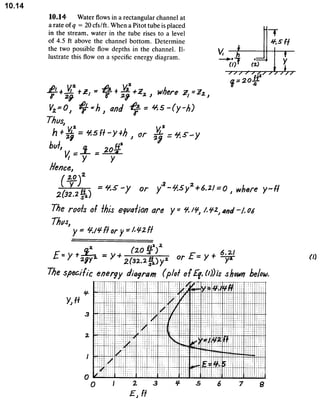 10.14
10.14 Water flows in a rectangular channel at
a rate of q = 20 cfs/ft. When a Pitot tube is placed
in the stream, water in the tube rises to a level
of 4.5 ft above the channel bottom. Determine
the two possible flow depths in the channel. Il-
lustrate this flow on a specific energy diagram.
4.5 ft
V₁
y
(1) (2)
q = 20 ft²/s
p₁/γ + V₁²/2g + z₁ = p₂/γ + V₂²/2g + z₂ , where z₁ = z₂ ,
V₂ = 0 , p₁/γ = h , and p₂/γ = 4.5 - (y-h)
Thus,
h + V₁²/2g = 4.5 ft - y + h , or V₁²/2g = 4.5 - y
but,
V₁ = q/y = 20 ft²/s / y
Hence,
(20/y)² / 2(32.2 ft/s²) = 4.5 - y or y³ - 4.5y² + 6.21 = 0 , where y ~ ft
The roots of this equation are y = 4.14, 1.42, and -1.06
Thus,
y = 4.14 ft or y = 1.42 ft
E = y + q²/2gy² = y + (20 ft²/s)² / 2(32.2 ft/s²) y² or E = y + 6.21/y² (1)
The specific energy diagram (plot of Eq. (1)) is shown below.
y, ft
4
3
2
1
0
y = 4.14 ft
y = 1.42 ft
E = 4.5
0 1 2 3 4 5 6 7 8
E, ft